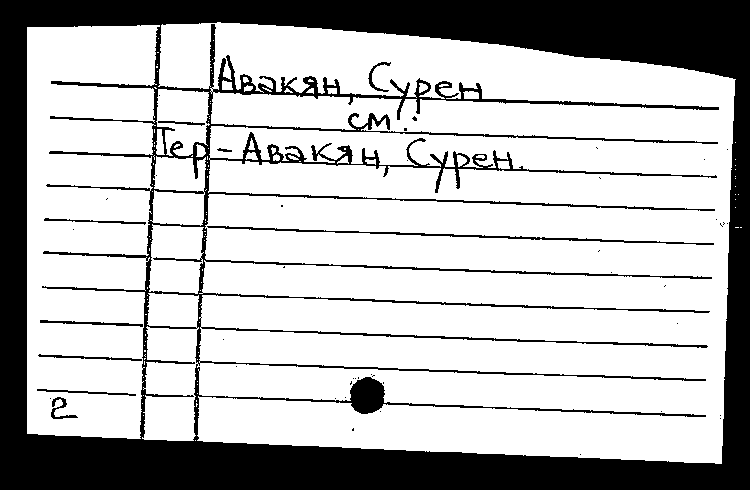 Авакян, Сурен
см.:
Тер-Авакян, Сурен.
2